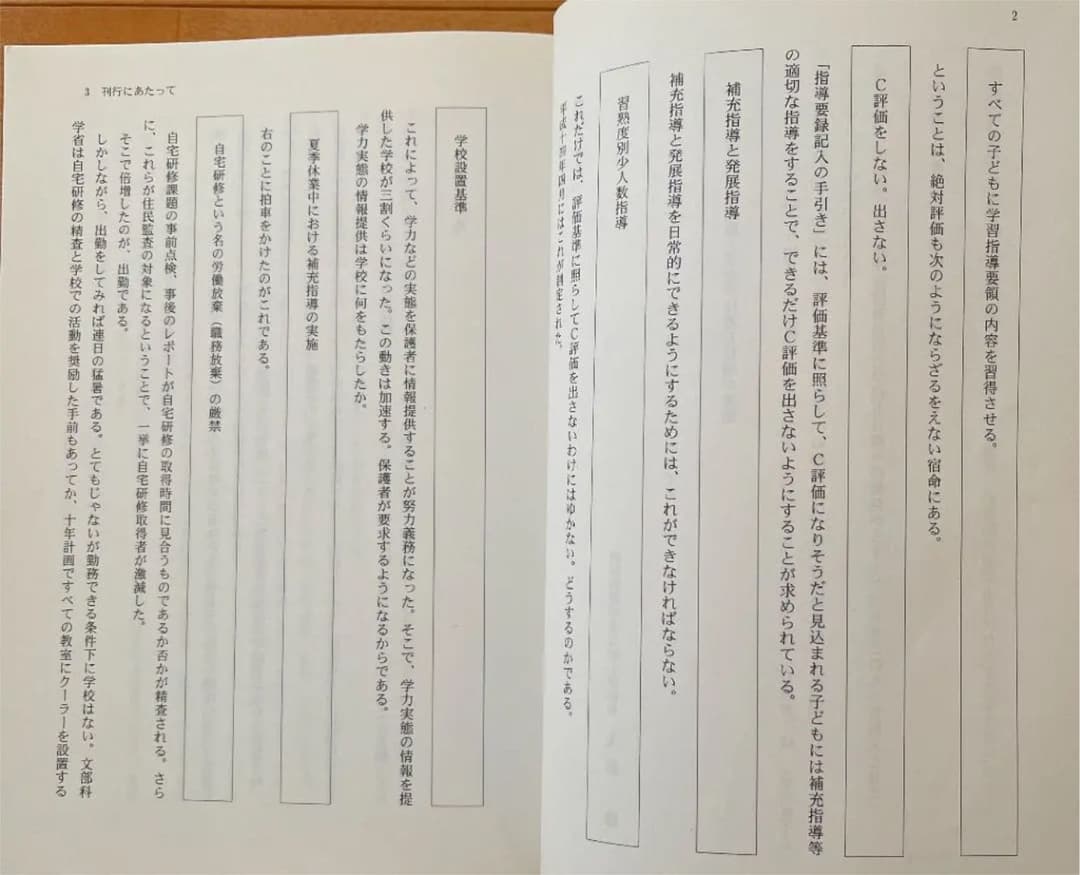 2
すべての子どもに学習指導要領の内容を習得させる。
ということは、絶対評価も次のようにならざるをえない宿命にある。
C評価をしない。出さない。
「指導要録記入の手引き」には、評価基準に照らして、C評価になりそうだと見込まれる子どもには補充指導等
の適切な指導をすることで、できるだけC評価を出さないようにすることが求められている。
補充指導と発展指導
補充指導と発展指導を日常的にできるようにするためには、これができなければならない。
習熟度別少人数指導
これだけでは、評価基準に照らしてC評価を出さないわけにはゆかない。どうするのかである。
平成十四年四月にはこれが制定された。
3 刊行にあたって
学校設置基準
これによって、学力などの実態を保護者に情報提供することが努力義務になった。そこで、学力実態の情報を提
供した学校が三割くらいになった。この動きは加速する。保護者が要求するようになるからである。
学力実態の情報提供は学校に何をもたらしたか。
夏季休業中における補充指導の実施
右のことに拍車をかけたのがこれである。
自宅研修という名の労働放棄（職務放棄）の厳禁
自宅研修課題の事前点検、事後のレポートが自宅研修の取得時間に見合うものであるか否かが精査される。さら
に、これらが住民監査の対象になるということで、一挙に自宅研修取得者が激減した。
そこで倍増したのが、出勤である。
しかしながら、出勤をしてみれば連日の猛暑である。とてもじゃないが勤務できる条件下に学校はない。文部科
学省は自宅研修の精査と学校での活動を奨励した手前もあってか、十年計画ですべての教室にクーラーを設置する